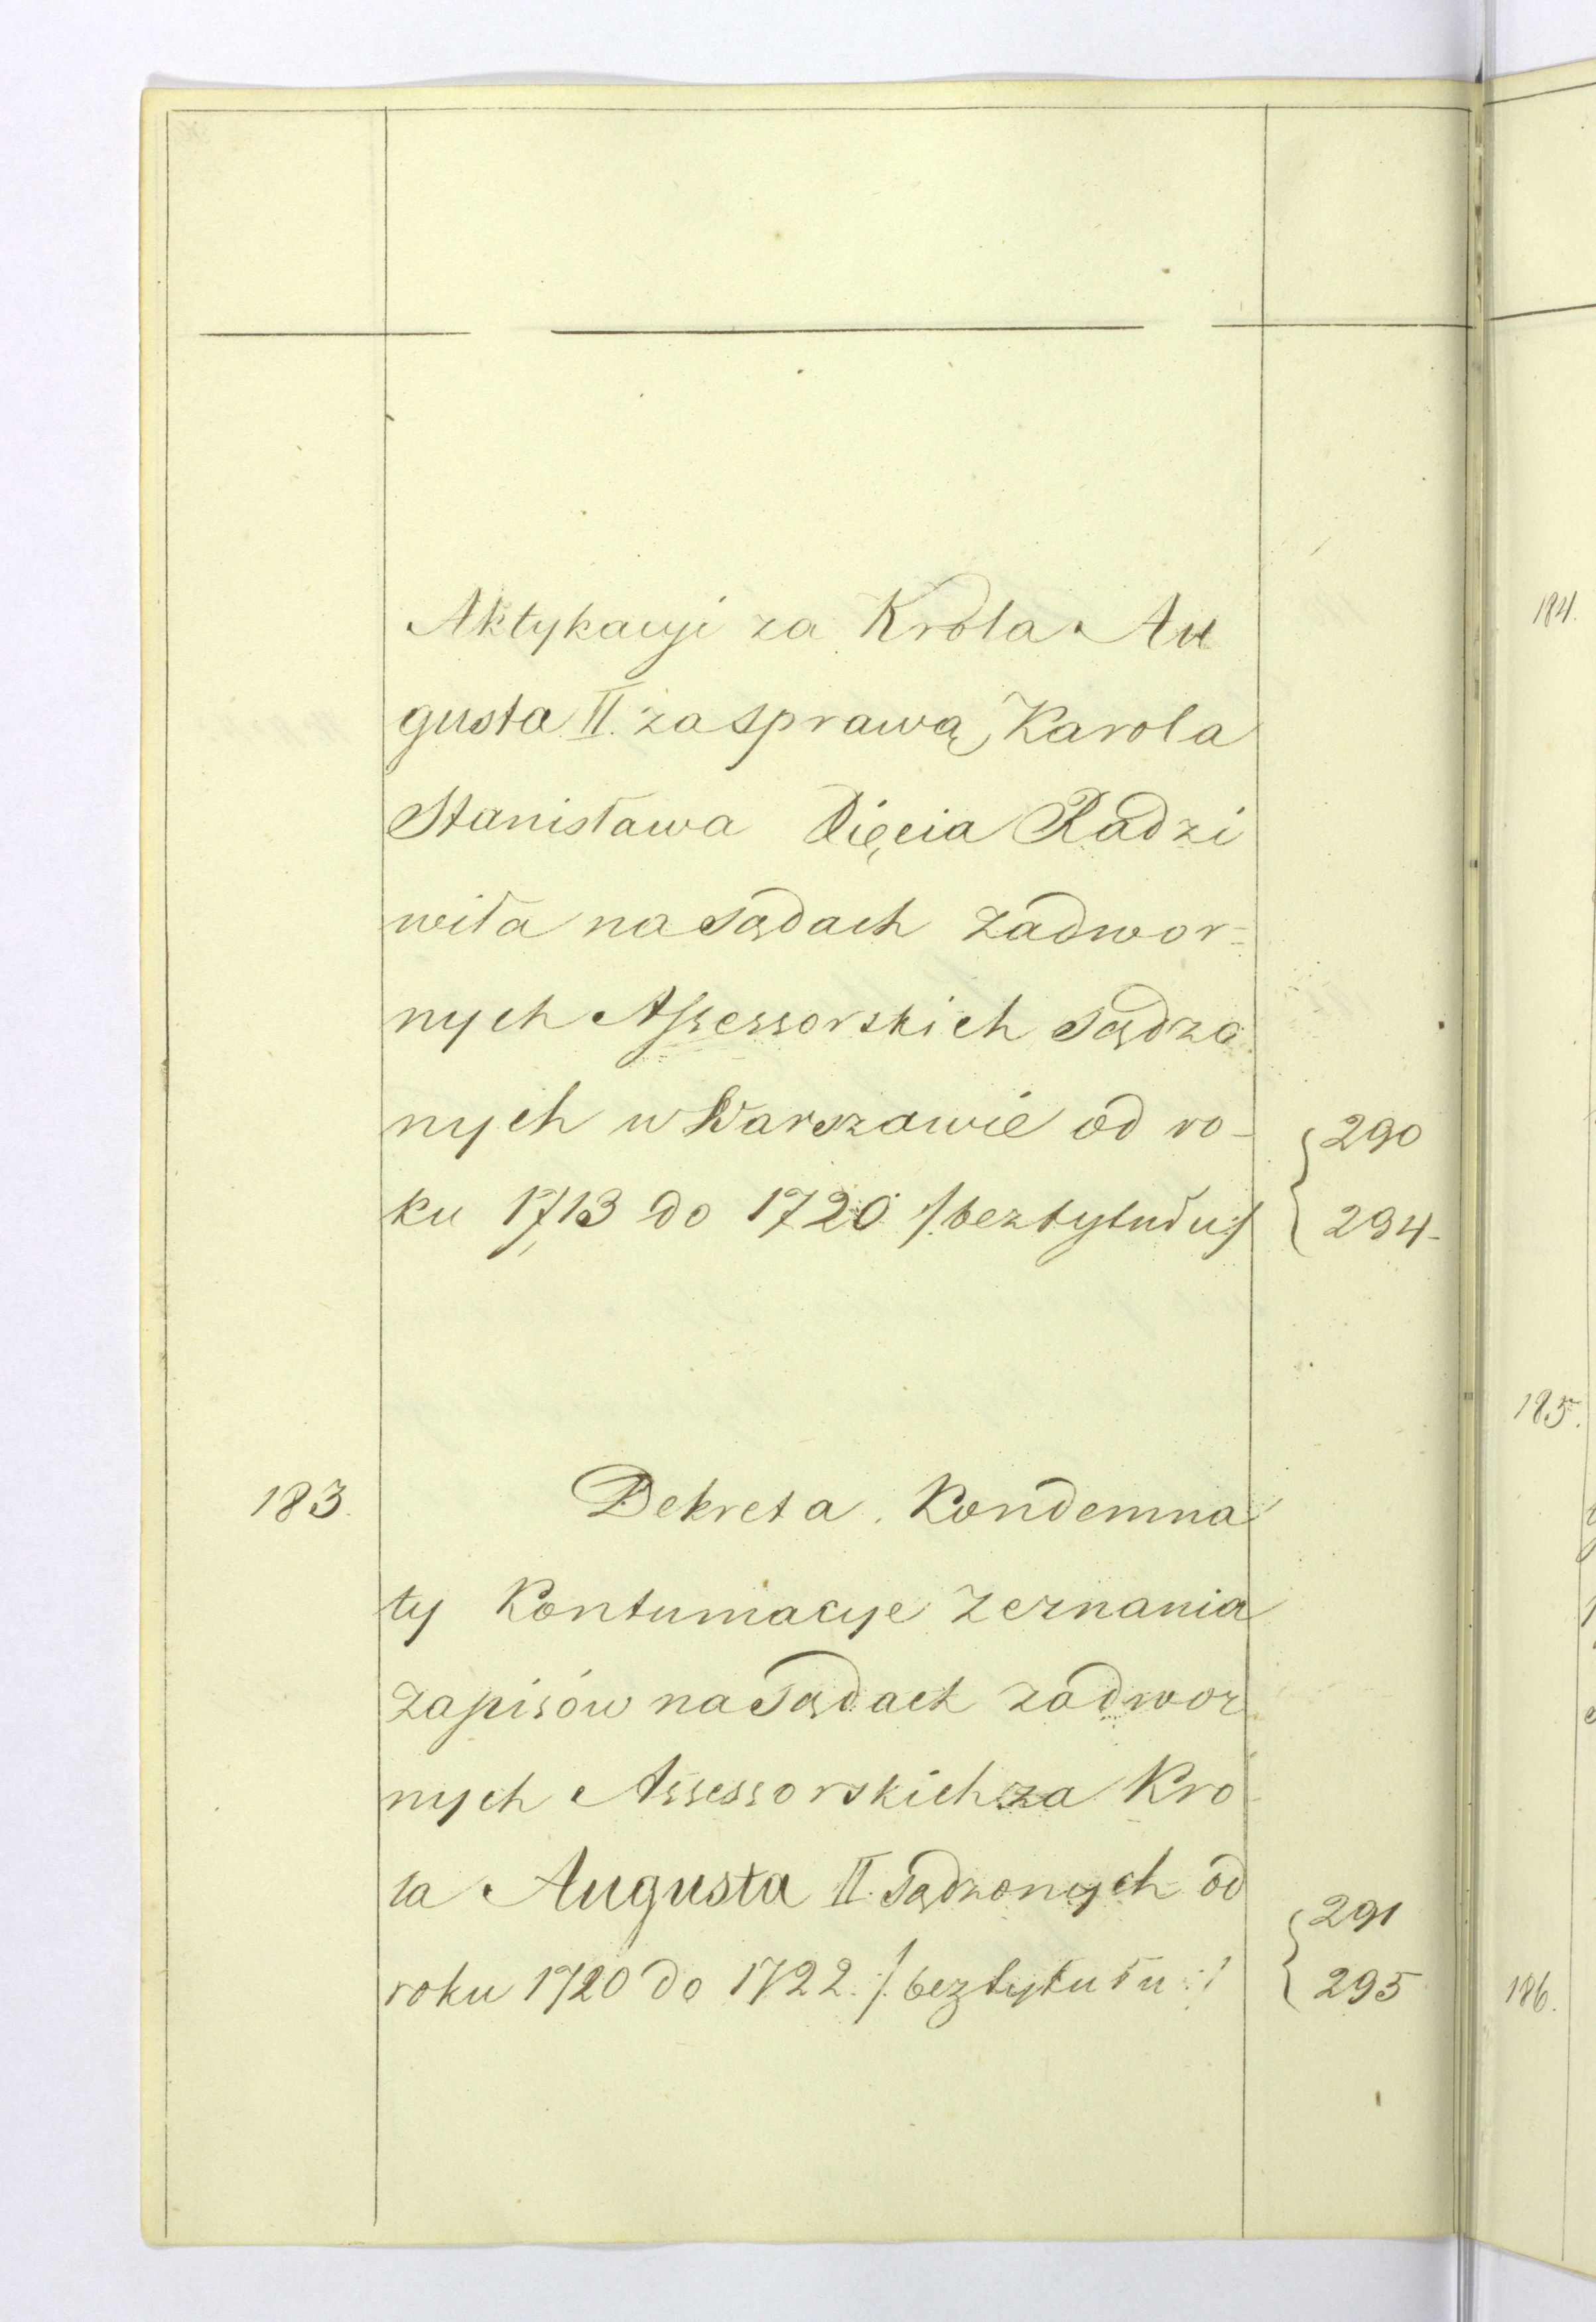 Aktykacyi za Krola Au
gusta II. za sprawą Karola
Stanisława Xięcia Radzi
wiła na sądach Zadwor=
nych Assessorskich sądzo
nych w Warszawie od ro-
ku 1713 do 1720 /:bez tytułu:/
{290
{294-
183.
Dekreta. Kondemna
ty Kontumacye Zeznania
Zapisów na sądach zadwor
nych Assessorskich za Kro
la Augusta II. sądzonych od
roku 1720 do 1722 /: bez tytułu :/
{291
{295
184.
185.
186.